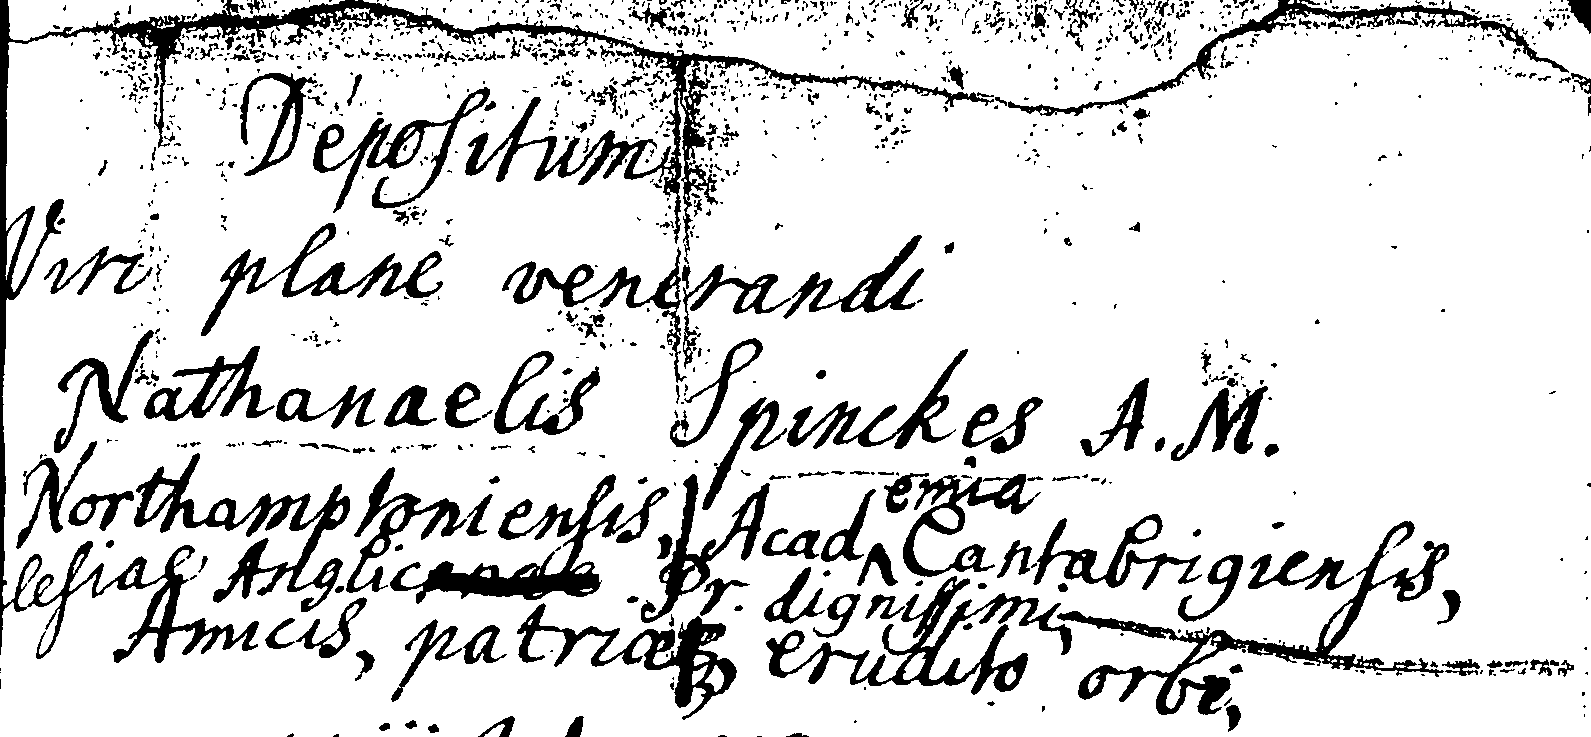 Depositum
Viri plane venerandi
Nathanaelis Spinckes A.M.
Northamptoniensis, Academia Cantabrigiensis,
lesiae Anglic. Pr. dignissimi,
Amicis, patriae, erudito orbi,